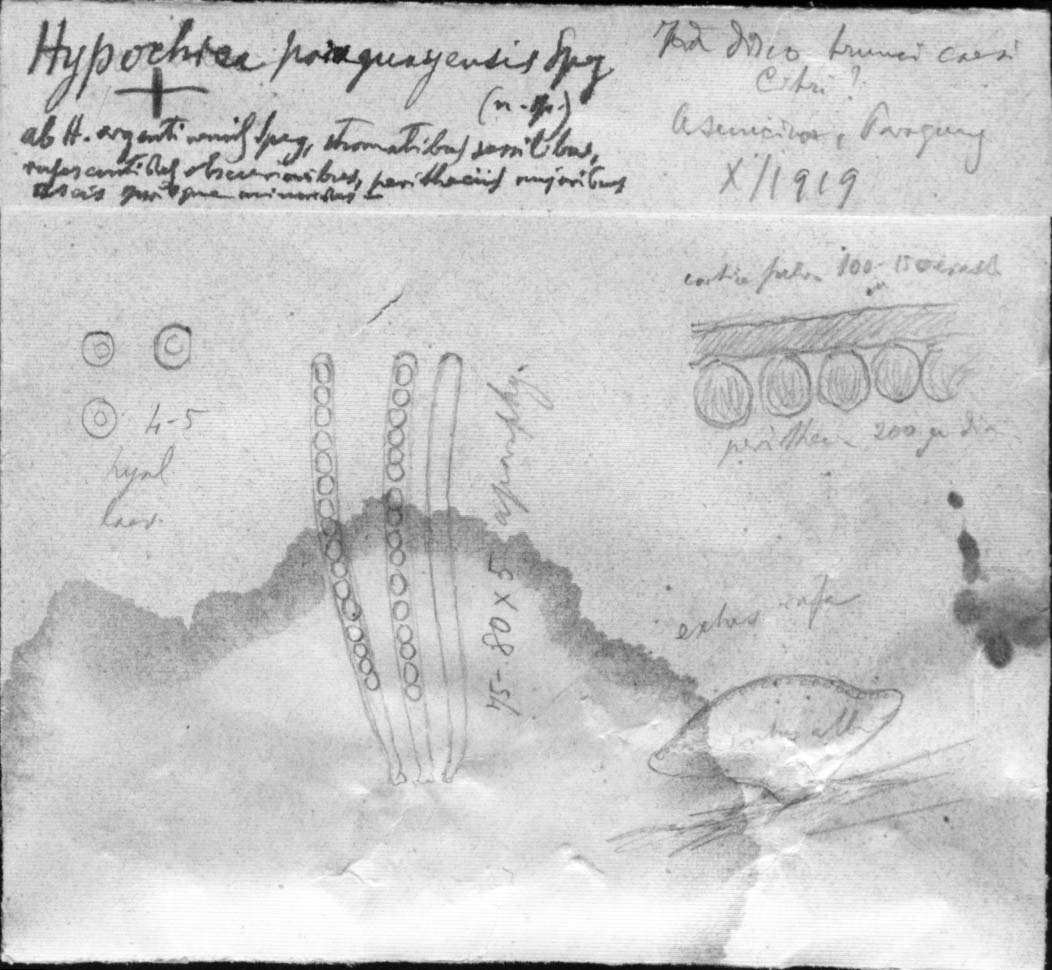 Hypochrea paraguayensis Speg
(n. sp.)
ab H. argentinensis Speg, stromatibus sessilibus,
rufescentibus obscurioribus, peritheciis majoribus
ascis sporisque minoribus
disco trunci caesi
Citri?
Asuncion, Paraguay
X/1919
100-150
4-5
hyal
laev.
aparaphys
75-80 X 5
perithec 200 μ dia
extus rufa
intus alba